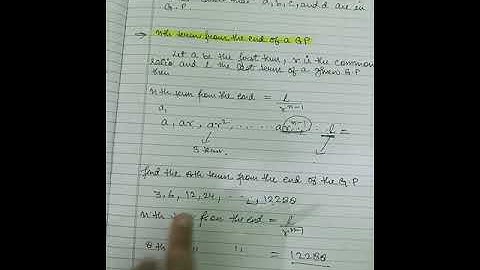 that a, b, c, and d are in
G.P
→ nth term from the end of a G.P
Let a be the first term, r is the common
ratio and l the last term of a given G.P
then
nth term from the end = l / r^(n-1)
a,
a, ar, ar², ..... ar^(n-1) : l =
3 term.
find the 8th term from the end of the G.P
3, 6, 12, 24, ..., 12288
nth from the end = l / r^(n-1)
8th " " = 12288